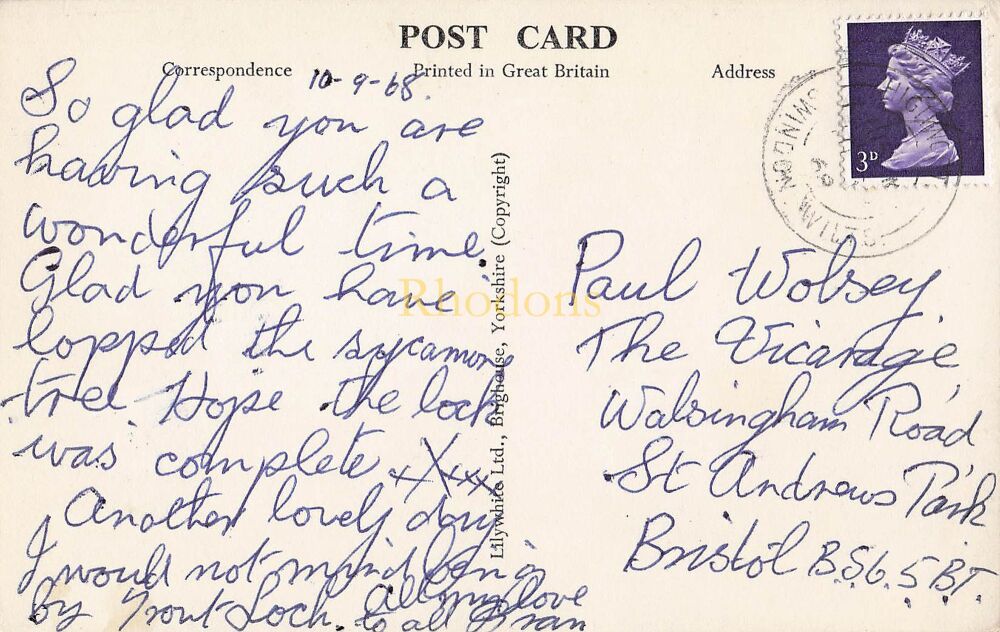 POST CARD
Correspondence
Printed in Great Britain
Address
10-9-68.
So glad you are
having such a
wonderful time.
Glad you have
lopped the sycamore
tree. Hope the lock
was complete xXxxx
Another lovely day
I would not mind being
by Trout Loch. All my love
to all Gran
Lilywhite Ltd., Brighouse, Yorkshire (Copyright)
Rhodons
3D
SWINDON
WILTS
Paul Wolsey
The Vicarage
Walsingham Road
St Andrews Park
Bristol BS6. 5BT.